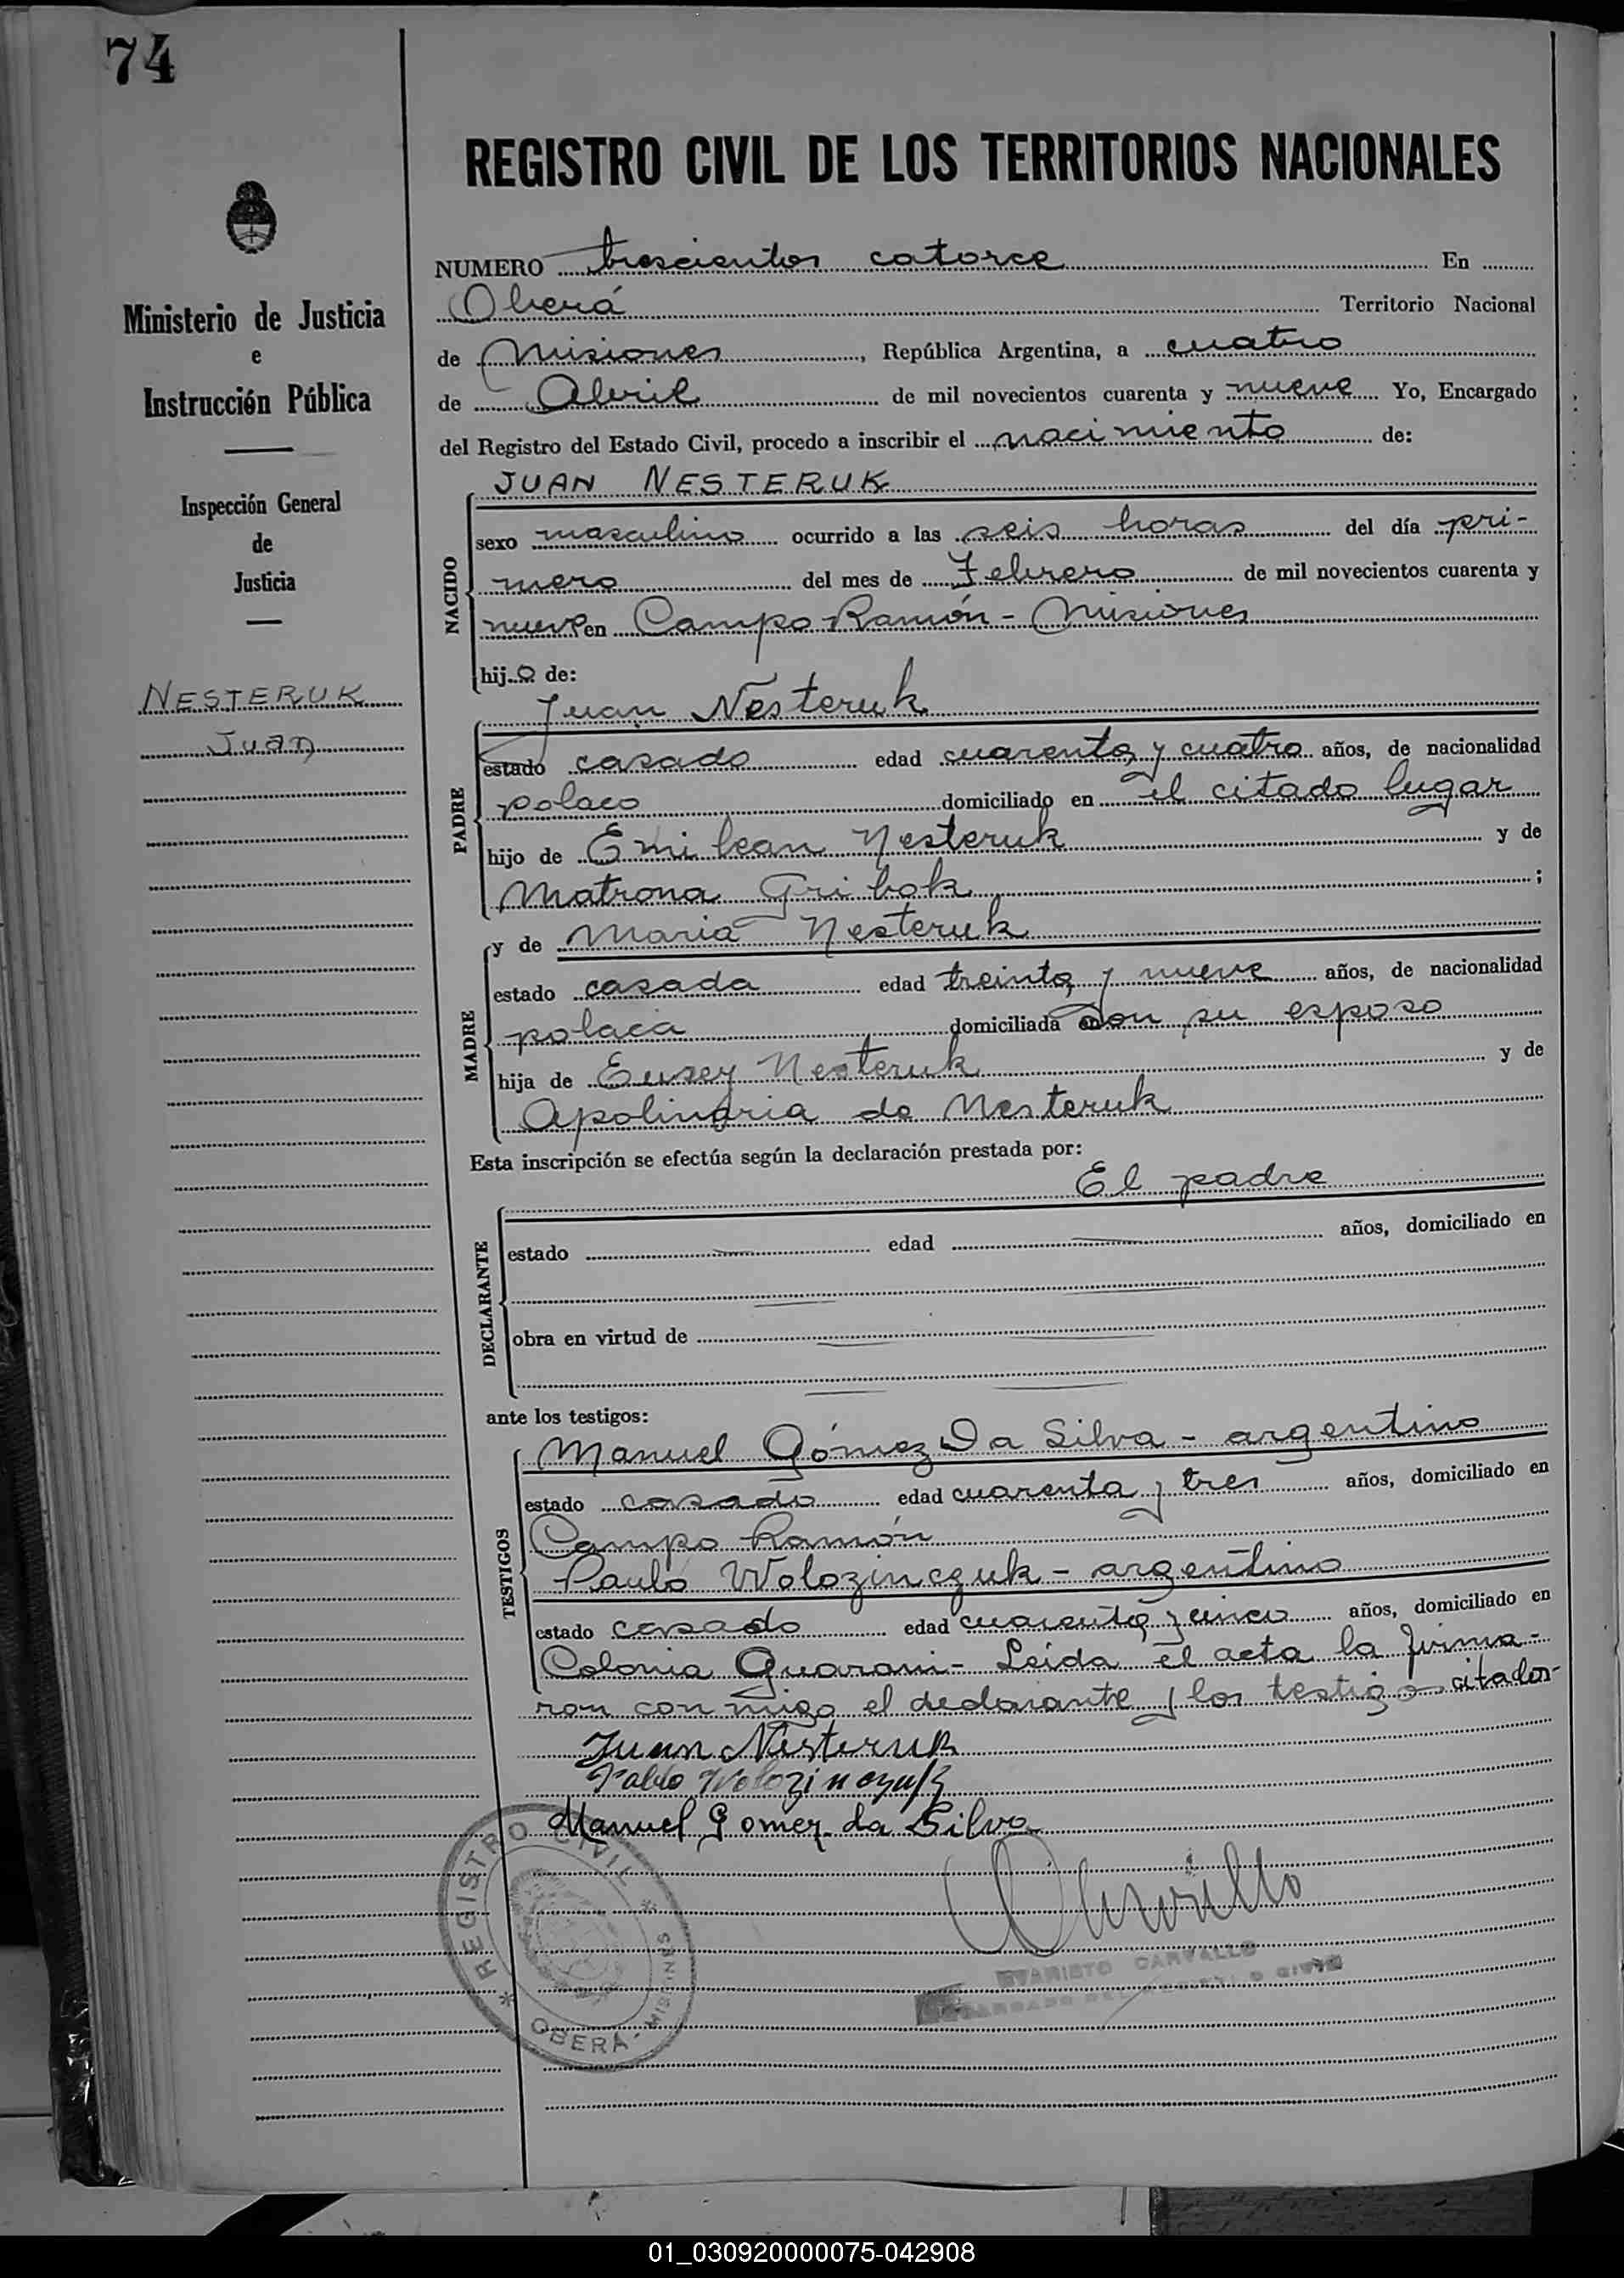 74
REGISTRO CIVIL DE LOS TERRITORIOS NACIONALES
Ministerio de Justicia
e
Instrucción Pública
Inspección General
de
Justicia
NESTERUK
Juan
NUMERO trescientos catorce En
Oberá Territorio Nacional
de Misiones, República Argentina, a cuatro
de Abril de mil novecientos cuarenta y nueve Yo, Encargado
del Registro del Estado Civil, procedo a inscribir el nacimiento de:
JUAN NESTERUK
NACIDO
sexo masculino ocurrido a las seis horas del día pri-
mero del mes de Febrero de mil novecientos cuarenta y
nueve en Campo Ramón - Misiones
hijo de:
Juan Nesteruk
PADRE
estado casado edad cuarenta y cuatro años, de nacionalidad
polaco domiciliado en el citado lugar
hijo de Emilean Nesteruk y de
Matrona Gribok;
MADRE
y de Maria Nesteruk
estado casada edad treinta y nueve años, de nacionalidad
polaca domiciliada con su esposo
hija de Eusey Nesteruk y de
Apolinaria de Nesteruk
Esta inscripción se efectúa según la declaración prestada por:
El padre
DECLARANTE
estado edad años, domiciliado en
obra en virtud de
ante los testigos:
TESTIGOS
Manuel Gómez Da Silva - argentino
estado casado edad cuarenta y tres años, domiciliado en
Campo Ramón
Paulo Wolozinczuk - argentino
estado casado edad cuarenta y cinco años, domiciliado en
Colonia Guarani - Leida el acta la firma-
ron conmigo el declarante y los testigos citados-
Juan Nesteruk
Pablo Wolozinczuk
Manuel Gomez da Silva
* REGISTRO CIVIL *
OBERA - MISIONES
EVARISTO CARVALLO
ENCARGADO DEL REGISTRO CIVIL
01_030920000075-042908